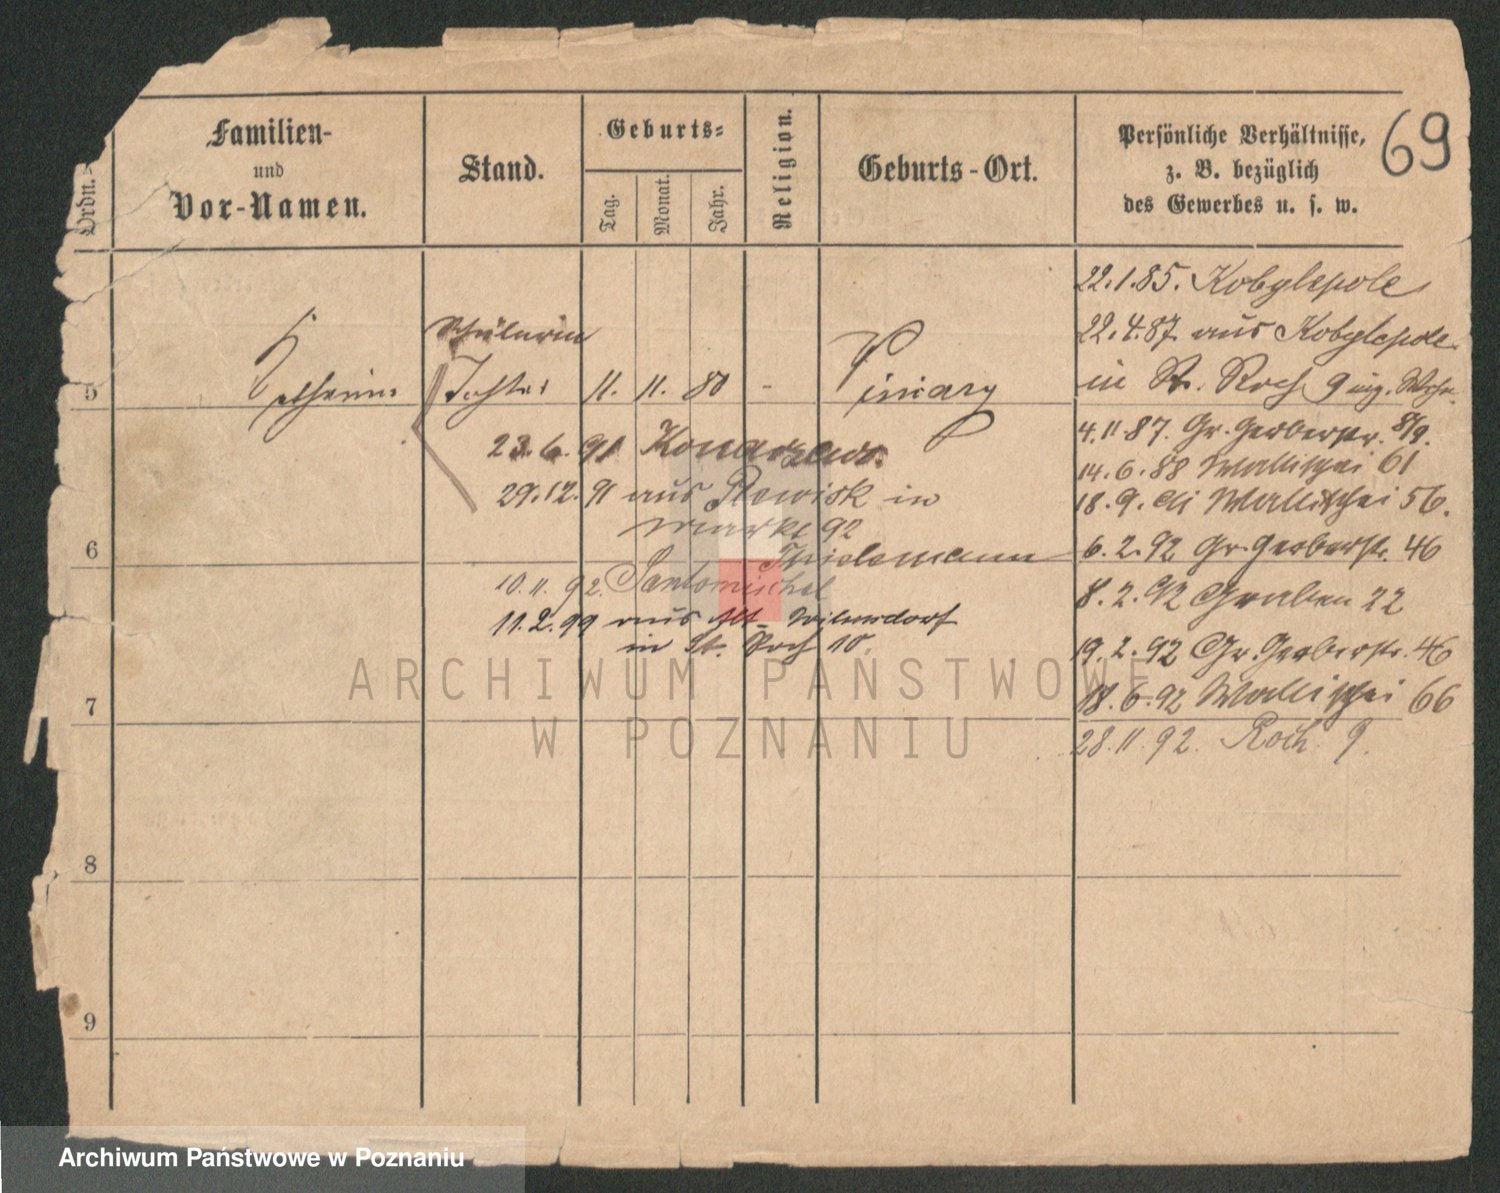 69
Ordn.
Familien-
und
Vor-Namen.
Stand.
Geburts-
Tag.
Monat.
Jahr.
Religion.
Geburts-Ort.
Persönliche Verhältnisse,
z. B. bezüglich
des Gewerbes u. s. w.
22.1.85. Kobylepole
Schülerin
22.4.87. aus Kobylepole
5
Tochter 11. 11. 80 -
in St. Roch 9
4.11 87. Gr. Gerberstr. 8/9.
23.6.91
14.6.88 Wallischei 61
29.12.91 aus in
18.9. Wallischei 56.
Markt 92
6
Thielemann
6.2.92 Gr. Gerberstr. 46
10.11.92. Santomischel
8.2.92 Graben 22
11.2.99 aus Alt-
in St. Roch 10.
19.2.92 Gr. Gerberstr. 46
18.6.92 Wallischei 66
7
28.11.92. Roch 9.
8
9
ARCHIWUM PAŃSTWOWE
W POZNANIU
Archiwum Państwowe w Poznaniu